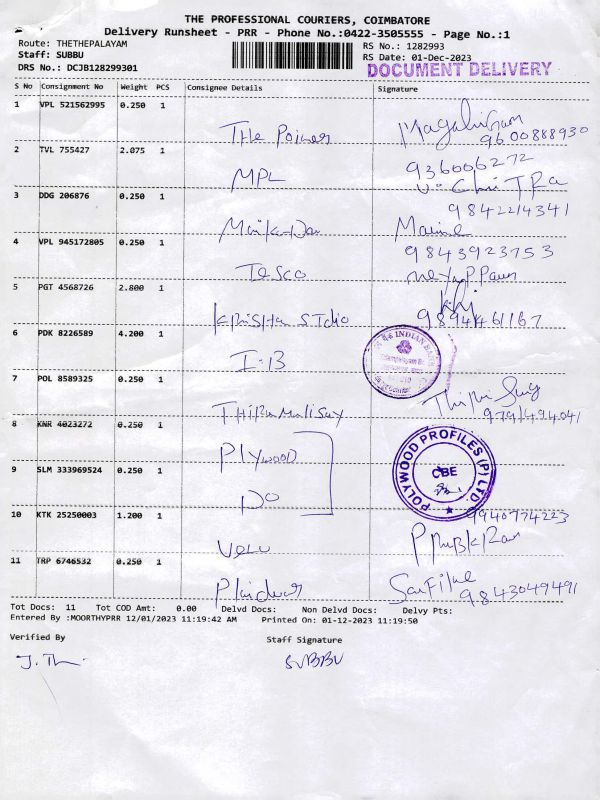 THE PROFESSIONAL COURIERS, COIMBATORE
Delivery Runsheet - PRR - Phone No.:0422-3505555 - Page No.:1
Route: THETHEPALAYAM RS No.: 1282993
Staff: SUBBU RS Date: 01-Dec-2023
DRS No.: DCJB128299301 DOCUMENT DELIVERY
S No Consignment No Weight PCS Consignee Details Signature
1 VPL 521562995 0.250 1
9600888930
2 TVL 755427 2.075 1 MPL 936006272
3 DDG 206876 0.250 1
9842214341
4 VPL 945172805 0.250 1 TESCO 9843923753
5 PGT 4568726 2.800 1
KRISHA STDIO 9894461167
6 PDK 8226589 4.200 1 I.B INDIAN BANK
7 POL 8589325 0.250 1 THIRUMALISAY
9791494041
8 KNR 4023272 0.250 1 PLYWOOD
POLYWOOD PROFILES (P) LTD.
CBE
9 SLM 333969524 0.250 1 DO
10 KTK 25250003 1.200 1 VELU 9940774223
11 TRP 6746532 0.250 1
9843049491
Tot Docs: 11 Tot COD Amt: 0.00 Delvd Docs: Non Delvd Docs: Delvy Pts:
Entered By :MOORTHYPRR 12/01/2023 11:19:42 AM Printed On: 01-12-2023 11:19:50
Verified By Staff Signature
SUBBU